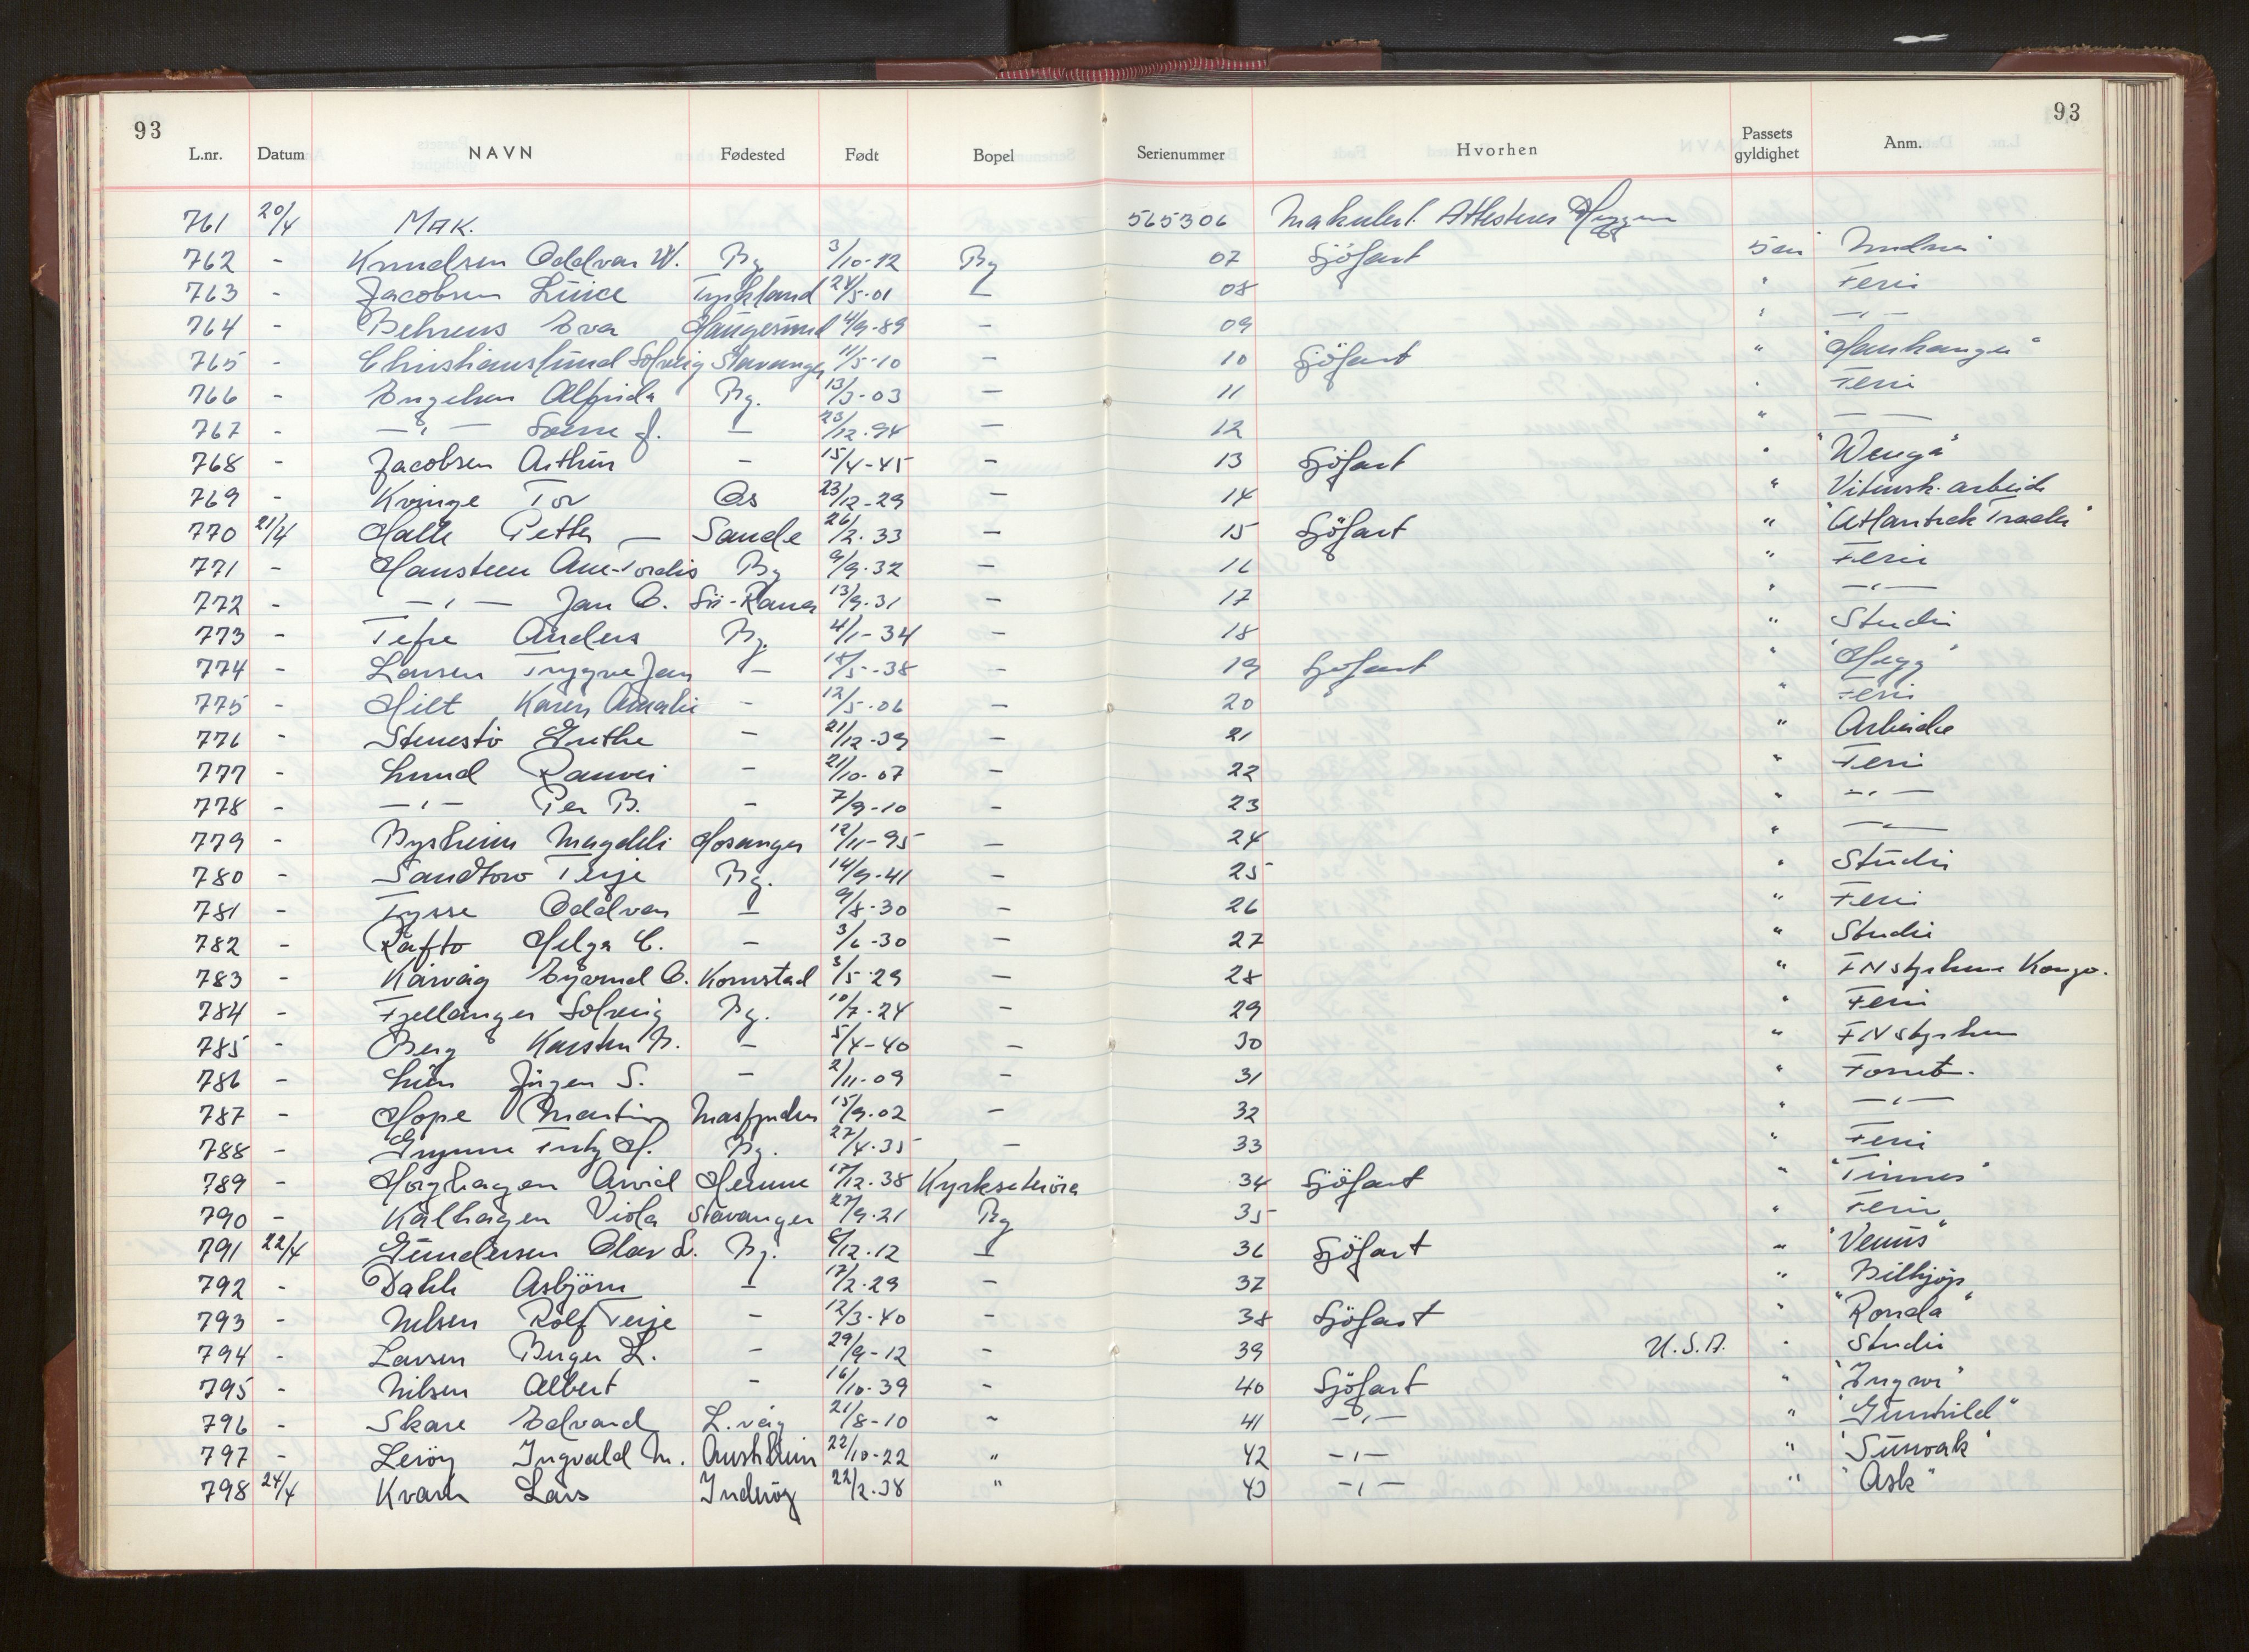 93
93
L.nr. Datum NAVN Fødested Født Bopel Serienummer Hvorhen Passets gyldighet Anm.
761 20/4 MAK. 565306 Makulert. Attesteres
762 - Knudsen Oddvar W. Bg 3/10-12 Bg 07 Sjöfart 5 år
763 - Jacobsen Luice Tyskland 24/5-01 - 08 " Ferie
764 - Behrens Eva Haugesund 4/9-89 - 09 " -"-
765 - Christianslund Solveig Stavanger 11/5-10 - 10 Sjöfart " "Haukanger"
766 - Engelsen Alfrida Bg. 13/3-03 - 11 " Ferie
767 - -"- Sverre J. - 23/12-94 - 12 " -"-
768 - Jacobsen Arthur - 15/4-45 - 13 Sjöfart " "Wenga"
769 - Kvinge Tor Os 23/12-29 - 14 " Vitensk. arbeide
770 21/4 Halle Petter - Sande 26/2-33 - 15 Sjöfart " "Atlantick Trader"
771 - Hansteen Ane-Tordis Bg 9/9-32 - 16 " Ferie
772 - -"- Jan C. Sö-Rana 13/9-31 - 17 " -"-
773 - Tefre Anders Bg. 4/1-34 - 18 " Studie
774 - Larsen Trygve Jan - 18/5-38 - 19 Sjöfart " "Hegg"
775 - Hilt Karen Amalie - 12/5-06 - 20 " Ferie
776 - Stenestö Grethe - 21/12-39 - 21 " Arbeide
777 - Lund Ranvei - 21/10-07 - 22 " Ferie
778 - -"- Per B. - 7/9-10 - 23 " -"-
779 - Bysheim Magdeli Hosanger 12/11-95 - 24 " -"-
780 - Sandtorv Terje Bg. 14/9-41 - 25 " Studie
781 - Tysse Oddvar - 9/8-30 - 26 " Ferie
782 - Rafto Helga C. - 3/6-30 - 27 " Studie
783 - Kårvåg Eyvind O. Kornstad 3/5-29 - 28 " FNstyrkene Kongo.
784 - Fjellanger Solveig Bg. 10/7-24 - 29 " Ferie
785 - Berg Karsten B. - 5/4-40 - 30 " FNstyrken
786 - Jörgen S. - 2/11-09 - 31 " Forret.
787 - Hope Martin Masfjorden 15/9-02 - 32 " -"-
788 - H. Bg. 27/4-35 - 33 " Ferie
789 - Höyhagen Arvid Hemne 17/12-38 Kyrksæteröra 34 Sjöfart " "Tinnes"
790 - Kålhagen Viola Stavanger 27/9-21 Bg 35 " Ferie
791 22/4 Gundersen Olav L. Bg. 8/12-12 - 36 Sjöfart " "Venus"
792 - Dahle Asbjörn - 17/2-29 - 37 " Bilkjöp
793 - Nilsen Rolf Terje - 12/3-40 - 38 Sjöfart " "Ronda"
794 - Larsen Birger L. - 29/9-12 - 39 U.S.A. " Studie
795 - Nilsen Albert - 16/10-39 - 40 Sjöfart " "Ingwi"
796 - Skare Edvard L.våg 21/8-10 - 41 -"- " "Gunhild"
797 - Leröy Ingvald M. Austrheim 22/10-22 " 42 -"- " "Sunvak"
798 24/4 Kvam Lars Inderöy 22/2-38 " 43 -"- " "Ask"